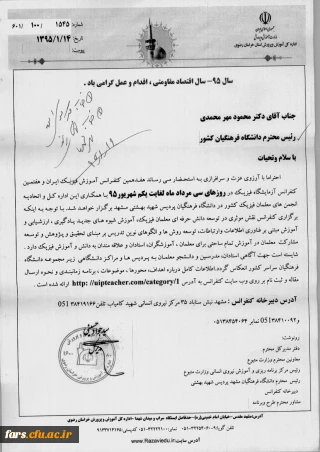 شماره : ۱۵۲۵ / ۱۰۰ / ۶۰۱
تاریخ : ۱۳۹۵/۱/۱۴
پیوست :
اداره کل آموزش و پرورش استان خراسان رضوی
سال ۹۵- سال اقتصاد مقاومتی ، اقدام و عمل گرامی باد .
جناب آقای دکتر محمود مهر محمدی
رئیس محترم دانشگاه فرهنگیان کشور
با سلام وتحیات
احتراما با آرزوی عزت و سرافرازی به استحضار می رساند هفدهمین کنفرانس آموزش فیزیک ایران و هفتمین
کنفرانس آزمایشگاه فیزیک در روزهای سی مرداد ماه لغایت یکم شهریور ۹۵ با همکاری این اداره کل و اتحادیه
انجمن های معلمان فیزیک کشور در دانشگاه فرهنگیان پردیس شهید بهشتی مشهد برگزار خواهد شد. با توجه به اینکه
برگزاری کنفرانس نقش موثری در توسعه دانش حرفه ای معلمان فیزیک، آموزش شیوه های جدید یادگیری ، ارزشیابی و
آموزش مبتنی بر فناوری اطلاعات وارتباطات، توسعه روش ها و الگوهای نوین تدریس بر مبنای تحقیق و پژوهش و توسعه
مشارکت معلمان در آموزش تمام ساحتی برای معلمان ، آموزشگران، استادان و علاقه مندان به دانش و آموزش فیزیک دارد .
شایسته است جهت آگاهی استادان، مدرسین و دانشجو معلمان به پردیس ها و مراکز دانشگاهی زیر مجموعه دانشگاه
فرهنگیان سراسر کشور انعکاس گردد.اطلاعات کامل درباره اهداف، محورها ، موضوعات ، برنامه زمانبندی و نحوه ارسال
مقاله و ثبت نام بر روی وب سایت کنفرانس به آدرس http://uipteacher.com/category/1 در دسترس می باشد.
آدرس دبیرخانه کنفرانس : مشهد نبش سناباد ۳۵ مرکز نیروی انسانی شهید کامیاب تلفن ۰۵۱۳۸۴۱۹۱۶۶
و ۰۵۱۳۸۴۱۰۰۹۲ نمابر ۰۵۱۳۸۴۵۴۰۶۴
رونوشت:
دفتر مدیرکل محترم
معاونین محترم وزارت متبوع
رئیس مرکز برنامه ریزی و آموزش نیروی انسانی متبوع
رئیس محترم دانشگاه فرهنگیان پردیس شهید بهشتی
دبیرخانه کنفرانس
مشاور محترم طرح وبرنامه
آدرس سایت: www.Razavi.edu.ir
fars.cfu.ac.ir